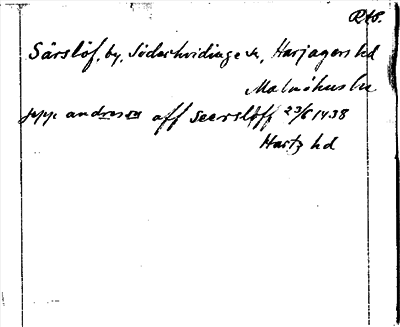 RAP.
Särslöf, by, Söderhvidinge sn, Harjagers hd
Malmöhus län
jepp andress off seerslöff 23/6 1438
Hartz hd